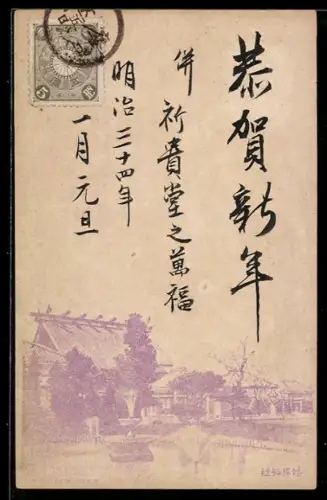 恭賀新年
併祈貴堂之萬福
明治三十四年
一月元旦